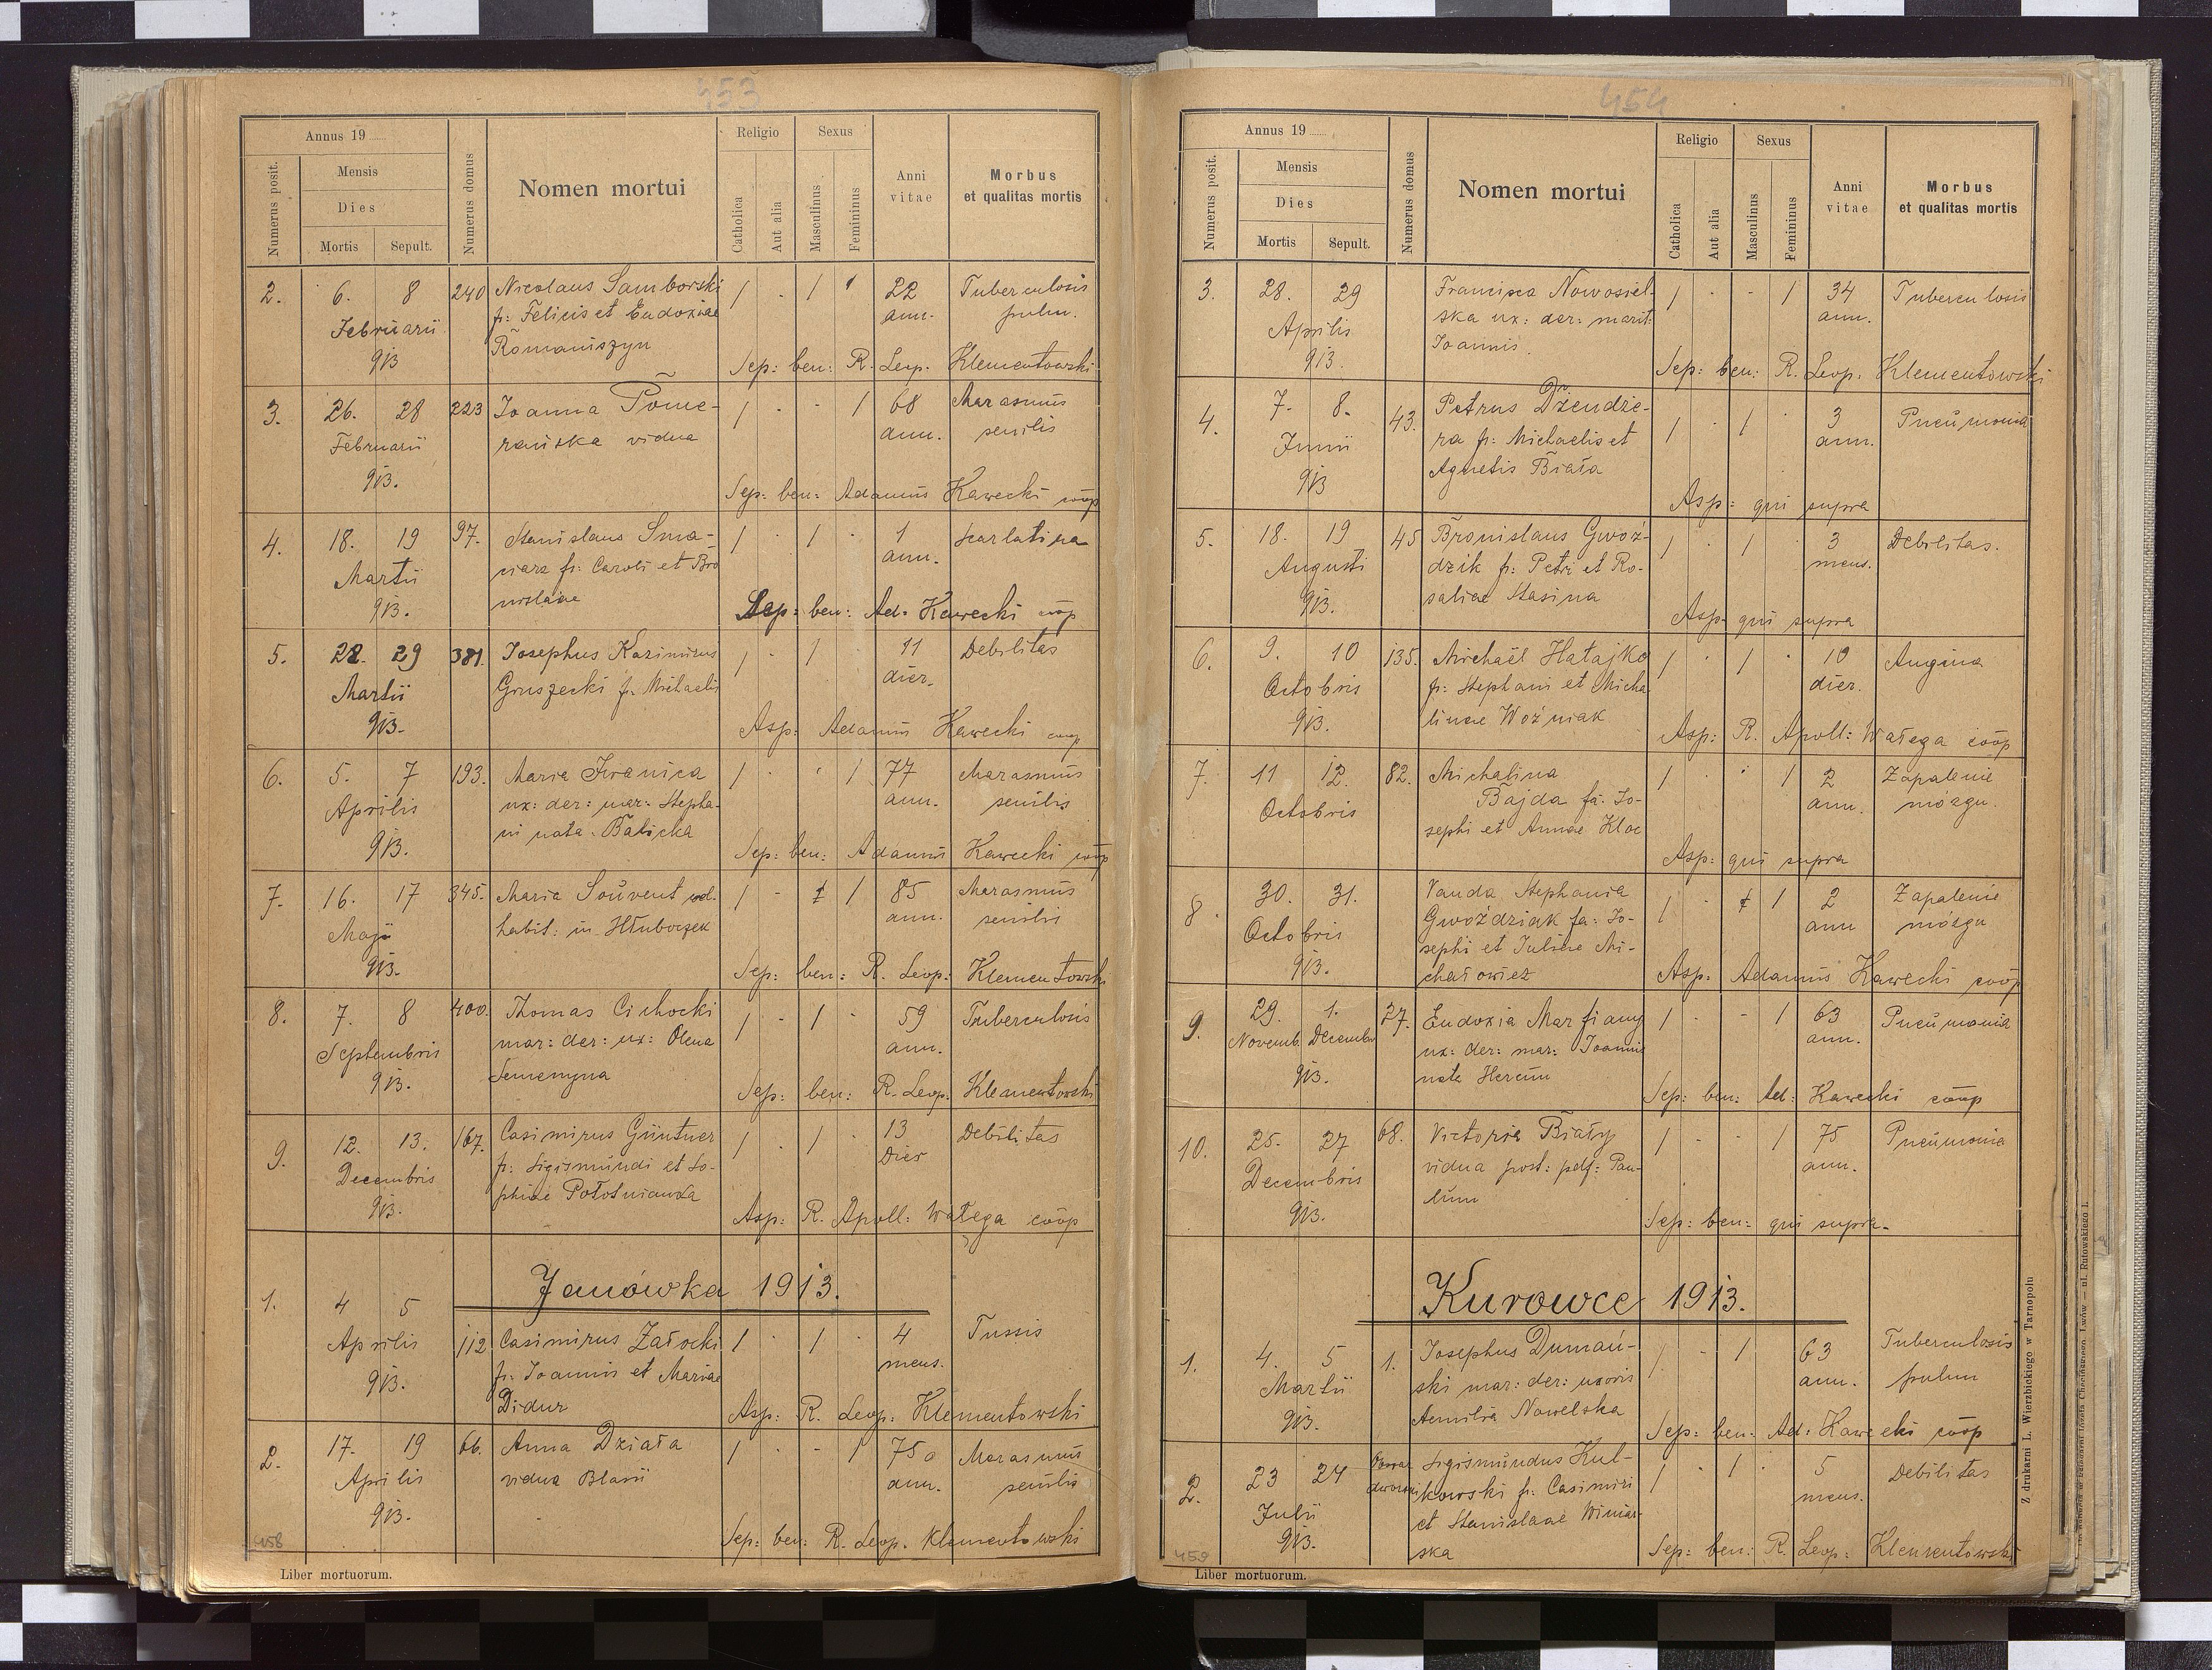 453
Annus 19
Numerus posit.
Mensis
Dies
Mortis
Sepult.
Numerus domus
Nomen mortui
Religio
Catholica
Aut alia
Sexus
Masculinus
Femininus
Anni
vitae
Morbus
et qualitas mortis
2. 6. 8 240 Nicolaus Samborski 1 . 1 22 Tuberculosis
Februarii f: Felicis et Eudoxiae ann. pulm.
913 Romaniszyn
Sep: ben: R. Leop. Klementowski
3. 26. 28 223 Joanna Pome- 1 . . 1 68 Marasmus
Februarii rańska vidua ann. senilis
913.
Sep: ben: Adamus Kawecki coop
4. 18. 19 97. Stanislaus Sma- 1 . 1 . 1 scarlatina
Martii ciarz f: Caroli et Bro ann.
913. nislaae
Sep: ben: Ad. Kawecki coop
5. 28. 29 381. Josephus Kazimirus 1 . 1 11 Debilitas
Martii Gruszecki f. Michaelis dier.
913.
Asp: Adamus Kawecki coop
6. 5. 7 193. Maria Iwanica 1 . . 1 77 Marasmus
Aprilis ux: der: mar: Stepha- ann. senilis
913. ni nata Balicka
Sep: ben: Adamus Kawecki coop
7. 16. 17 345. Maria Souvent vid. 1 - 1 85 Marasmus
Maji habit: in Hłuboczek ann. senilis
913.
Sep: ben: R. Leop: Klementowski
8. 7. 8 400. Thomas Cichocki 1 - 1 - 59 Tuberculosis
Septembris mar: der: ux: Olena ann.
913. Semenyna
Sep: ben: R. Leop: Klementowski
9. 12. 13. 167. Casimirus Güntner 1 . 1 . 13 Debilitas
Decembris f: Sigismundi et So- Dier
913. phiae Połotnianka
Asp: R. Apoll: Wałega coop
Janówka 1913.
1. 4 5
Aprilis 112 Casimirus Załocki 1 . 1 . 4 Tussis
913. f: Joannis et Mariae mens.
Didur
Asp: R. Leop: Klementowski
2. 17. 19 66. Anna Działa 1 . - 1 75 Marasmus
Aprilis vidua Blasii ann. senilis
913.
Sep: ben: R. Leop. Klementowski
458
Liber mortuorum.
454
Annus 19
Numerus posit.
Mensis
Dies
Mortis
Sepult.
Numerus domus
Nomen mortui
Religio
Catholica
Aut alia
Sexus
Masculinus
Femininus
Anni
vitae
Morbus
et qualitas mortis
3. 28. 29 Francisca Nowosiel- 1 . - 1 34 Tuberculosis
Aprilis ska ux: der: marit: ann.
913. Joannis.
Sep: ben: R. Leop: Klementowski
4. 7. 8. 43. Petrus Dżendże- 1 . 1 . 3 Pneumonia
Junii ra f: Michaelis et ann.
913 Agnetis Biała
Asp: qui supra
5. 18. 19 45 Bronislaus Gwoź- 1 . 1 . 3 Debilitas.
Augusti dzik f: Petri et Ro- mens.
913. saliae Stasina
Asp. qui supra
6. 9. 10 135. Michaël Hałajko 1 . 1 . 10 Angina
Octobris f: Stephani et Micha- dier.
913. linae Woźniak
Asp: R. Apoll: Wałega coop
7. 11 12. 82. Michalina 1 . . 1 2 Zapalenie
Octobris Bajda fa. Jo- ann. mózgu.
sephi et Annae Kloc
Asp: qui supra
8. 30. 31. Vanda Stephania 1 . 1 2 Zapalenie
Octobris Gwoździak fa: Jo- ann mózgu
913. sephi et Juliae Mi-
chałowicz
Asp: Adamus Kawecki coop
9. 29. 1. 27. Eudoxia Marfiany 1 - - 1 63 Pneumonia
Novemb. Decembr ux: der: mar: Joannis ann.
913. nata Hercun
Sep: ben: Ad: Kawecki coop
10. 25. 27 68. Victoria Biały 1 - - 1 75 Pneumonia
Decembris vidua post: pdf: Pau- ann.
913. lum
Sep: ben: qui supra.
Kurowce 1913.
1. 4. 5 1. Josephus Dumań- 1 - 1 63 Tuberculosis
Martii ski mar: der: uxoris ann. pulm
913. Aemilia Nowelska
Sep: ben: Ad. Kawecki coop
2. 23 24 Obszar Sigismundus Kul- 1 . 1 . 5 Debilitas
dworski kowski f: Casimiri mens.
Julii et Stanislaae Winiar-
913. ska
Sep: ben: R. Leop: Klementowski
459
Liber mortuorum.
Z drukarni L. Wierzbickiego w Tarnopolu